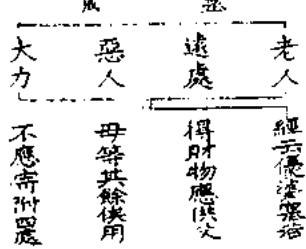 老人
遠處
惡人
大力
經云優婆塞若
得財物應供父
母等其餘供用
不應寄附四處